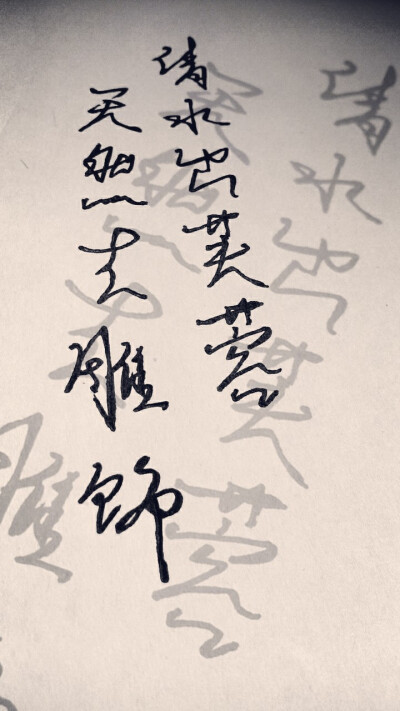 清水出芙蓉
天然去雕饰